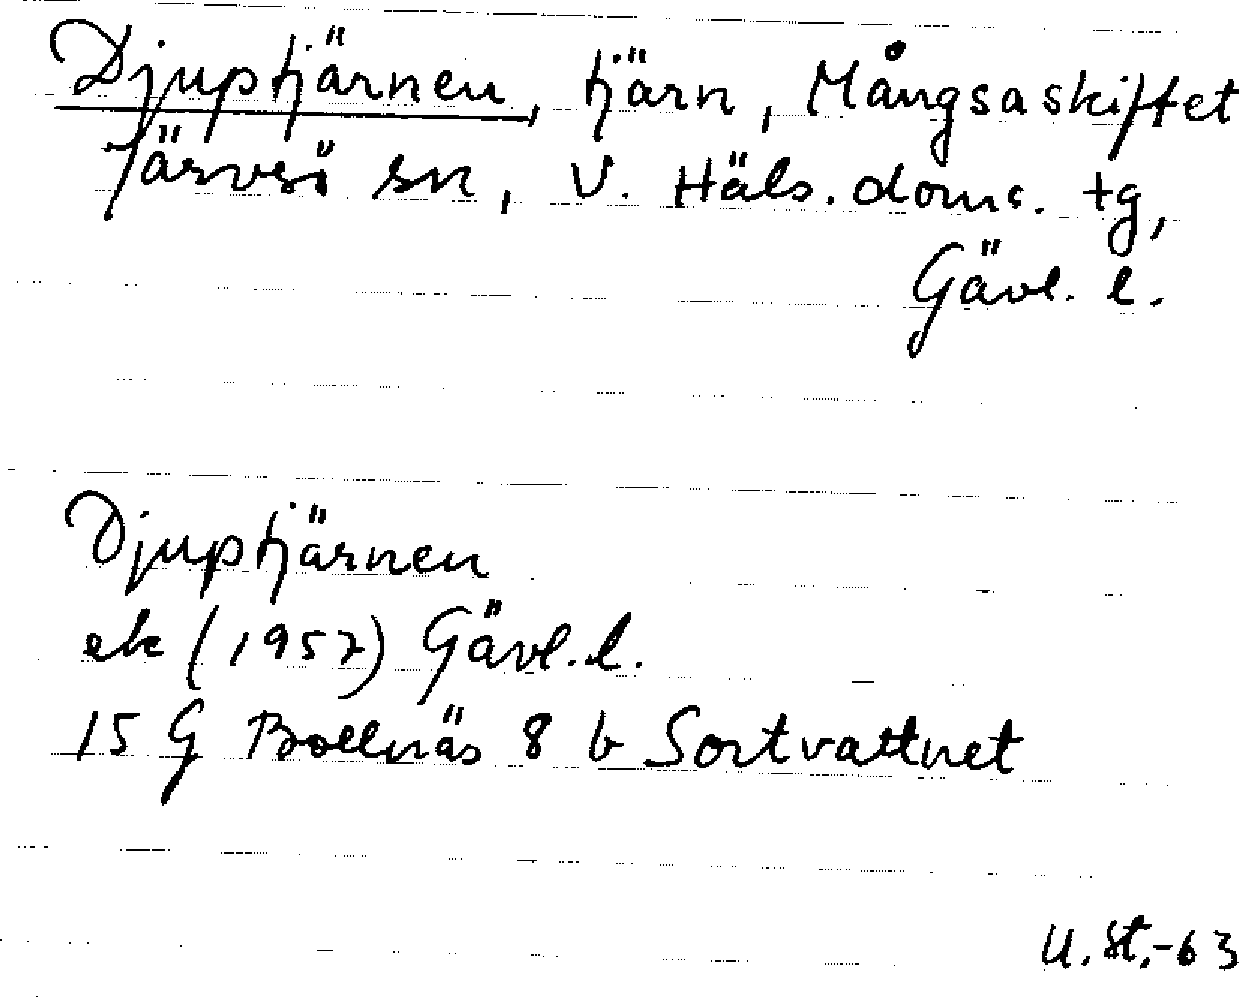 Djuptjärnen, tjärn, Mångsaskiftet
Järvsö sn, V. Häls. doms. tg,
Gävl. l.
Djuptjärnen
ek (1957) Gävl. l.
15 G Bollnäs 8 b Sortvattnet
U. St.-63